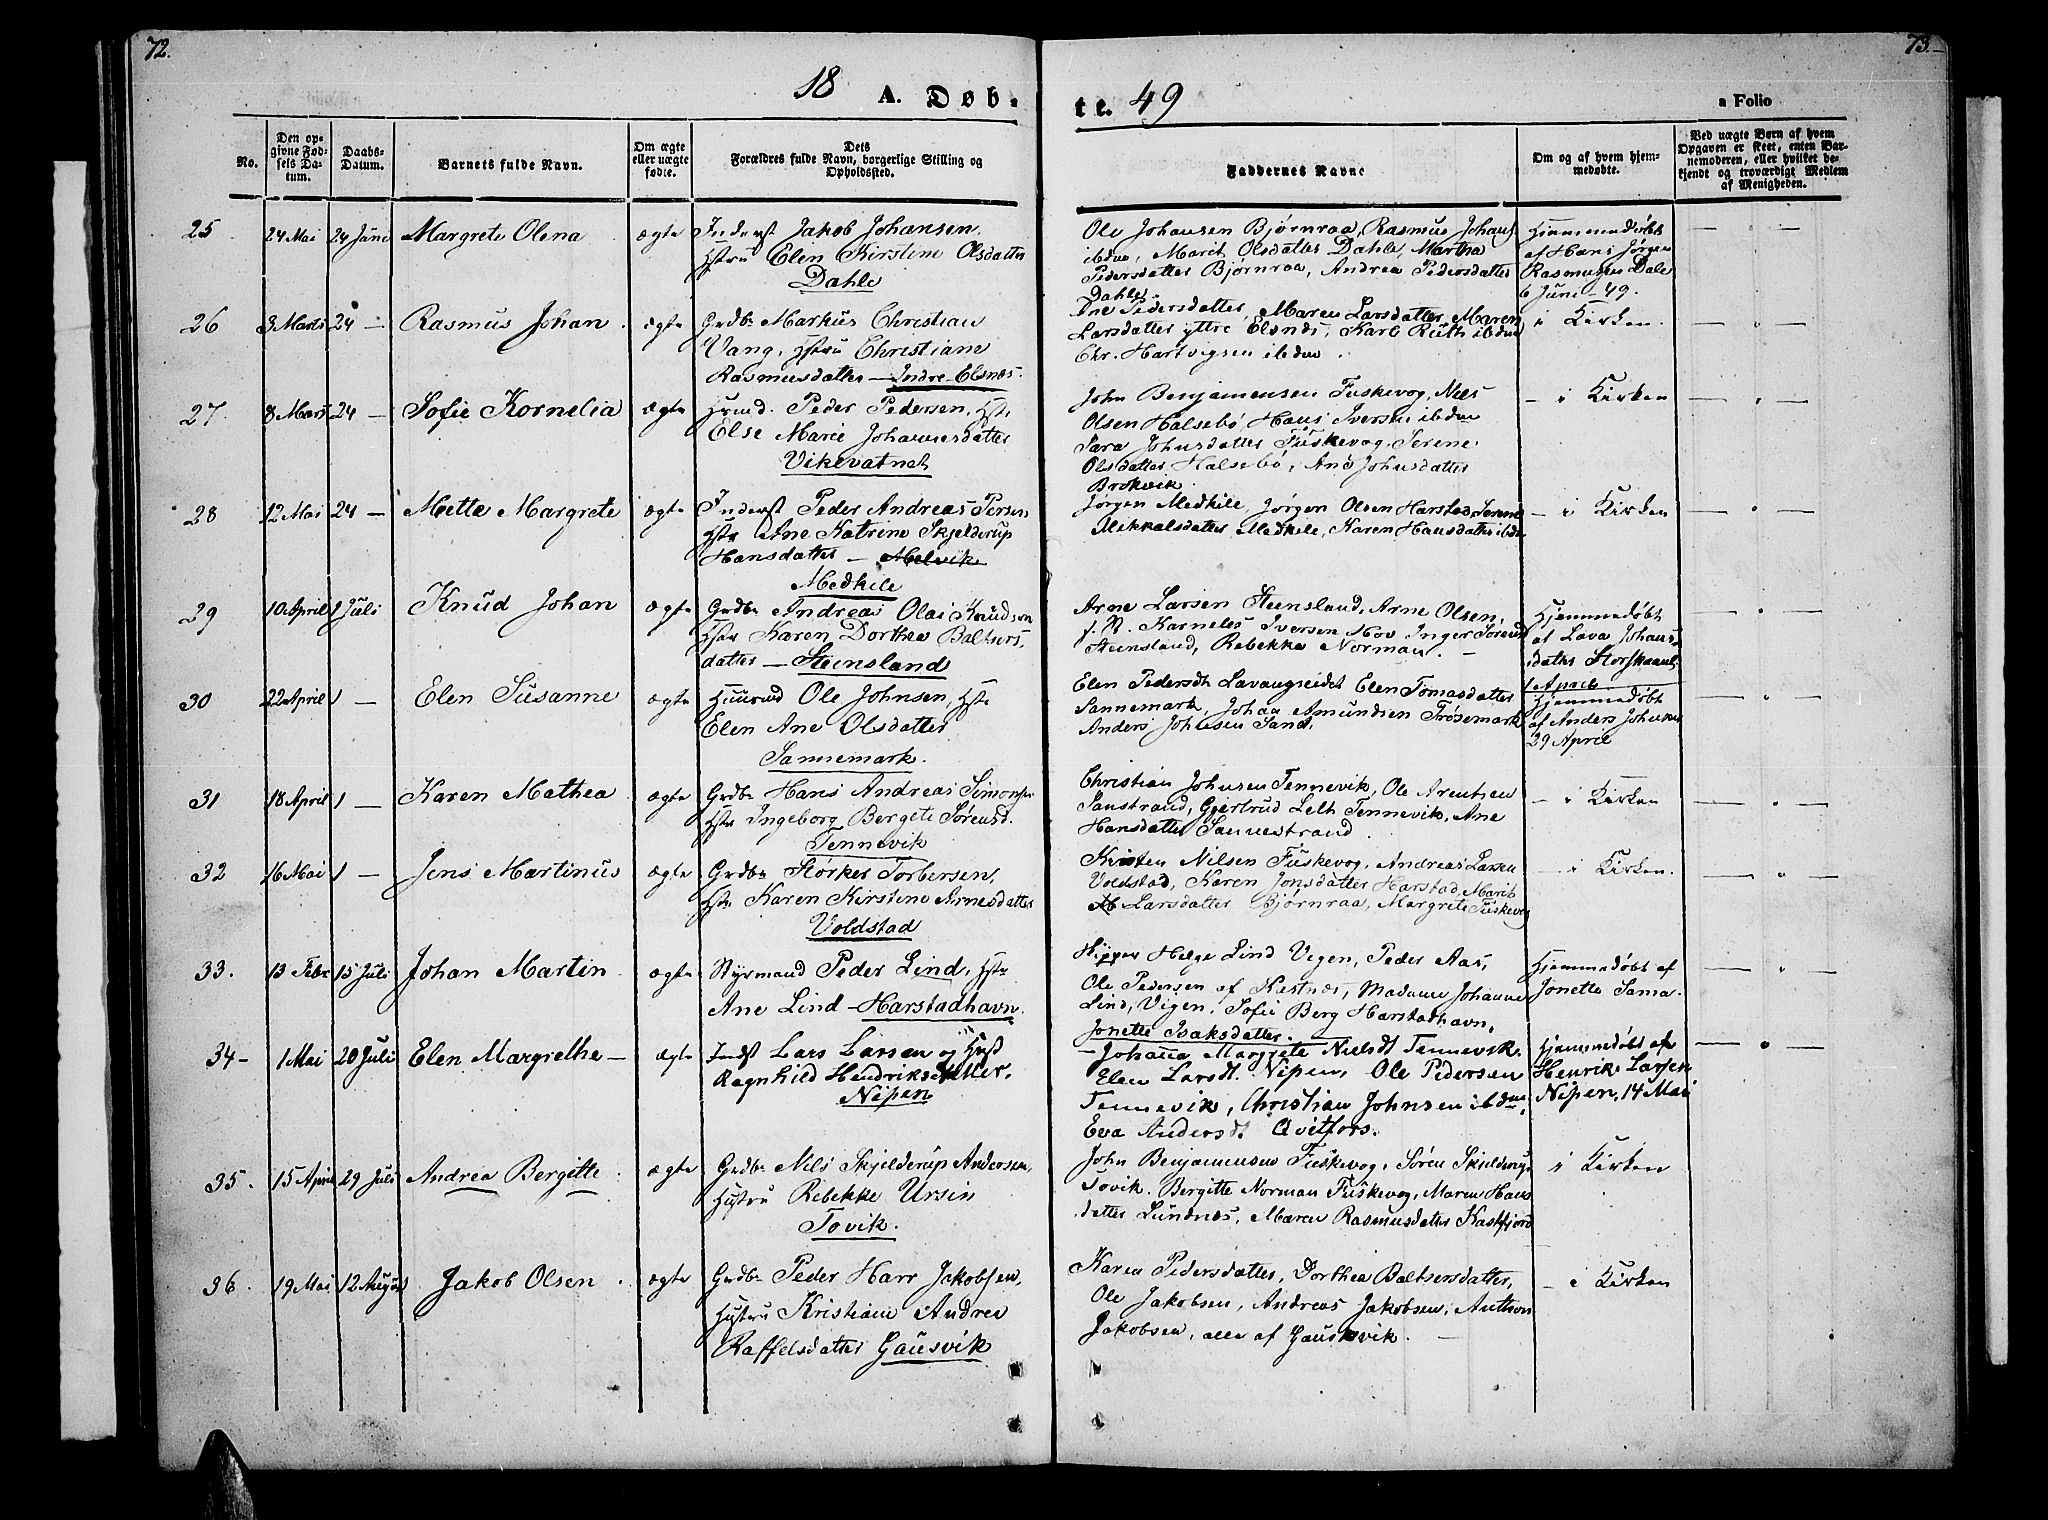 72.
73.
18 A. Døb-
te. 49
a Folio
No.
Den op-
givne Fød-
sels Da-
tum.
Daabs-
Datum.
Barnets fulde Navn.
Om ægte
eller uægte
fødte.
Dets
Forældres fulde Navn, borgerlige Stilling og
Opholdssted.
Faddernes Navne
Om og af hvem hjem-
medøbte.
Ved uægte Børn af hvem
Opgaven er skeet, enten Bar-
nemoderen, eller hvilket be-
kjendt og troværdigt Medlem
af Menigheden.
25 24 Mai 24 Juni Margrete Olena ægte Inderst Jakob Johansen.
Hstru Elen Kirstine Olsdatter
Dahle
Ole Johansen Bjørnraa, Rasmus Johans
ibdm, Marit Olsdatter Dahle, Martha
Pedersdatter Bjørnraa, Andrea Pedersdatter
Dahle
Hjemmedøbt
af Hans Jørgen
Rasmusen Dale
6 Juni - 49.
26 3 Marts 24 — Rasmus Johan ægte Grdbr Markus Christian
Vang, Hstru Christiane
Rasmusdatter — Indre Elsnæs.
Ane Pedersdatter, Maren Larsdatter, Maren
Larsdatter ytre Elsnes, Karl Ruth ibdm
Chr. Hartvigsen ibdm.
i Kirken.
27. 8 Mars 24 — Sofie Kornelia ægte Husmd. Peder Pedersen, Hst.
Else Marie Johannesdatter
Vikevatnet
John Benjamensen Fuskevog, Niels
Olsen Halsebø, Hans Iversen ibdm
Sara Johnsdatter Fuskevog, Serene
Olsdatter Halsebø, Ane Johnsdatter
Brokvik.
- i Kirken
28 12 Mai 24 — Mette Margrete ægte Inderst Peder Andreas Persen
Hstr Ane Katrine Skjelderup
Hansdatter — Melvik
Medkile
Jørgen Medkile, Jørgen Olsen Harstad, Serene
Mekkalsdatter Medkile, Karen Hansdatter ibdm
- i Kirken
29 10 April 1 Juli Knud Johan ægte Grdbr Andreas Olai Knudsen
Hstr Karen Dorthea Baltsers
datter — Steensland
Arne Larsen Steensland, Arne Olsen,
f. N. Karneles Iversen Mov Inger Sørensd
Steensland, Rebekka Norman. -
Hjemmedøbt
af Lava Johans
datter
1 April
30 22 April 1 — Elen Susanne ægte Huusmd Ole Johnsen, Hstr
Elen Ane Olsdatter
Sannemark.
Elen Pedersdt Lavangseidet Elen Tomasdatter
Sannemark, Johan Amundsen Trøsemark
Anders Johnsen Sand.
Hjemmedøbt
af Anders Johnsen
29 April
31 18 April 1 — Karen Mathea ægte Grdbr Hans Andreas Simonsen
Hstr Ingeborg Bergete Sørensd.
Tennevik
Christian Johnsen Tennevik, Ole Arentsen
Sanstrand, Gjertrud Leth Tennevik, Ane
Hansdatter Sannestrand
- i Kirken
32 16 Mai 1 — Jens Martinus ægte Grdbr Størker Torbersen,
Hstr Karen Kirstine Arnesdatter
Voldstad
Kristen Nilsen Fuskevog, Andreas Larsen
Voldstad, Karen Jonsdatter Harstad, Marit
Larsdatter Bjørnraa, Margrete Fuskevog
- i Kirken.
33. 13 Febr 15 Juli Johan Martin ægte Styrmand Peder Lind, Hstr
Ane Lind — Harstadhavn.
Skipper Helge Lind Vegen, Peder Aas,
Ole Pedersen af Kastnæs, Madame Johanne
Lind, Vigen, Sofie Berg Harstadhavn,
Jonette Isaksdatter. —
Hjemmedøbt af
Jonette Sama.
34 - 1 Mai 20 Juli Elen Margrethe — ægte Indst Lars Larsen og Hust
Ragnhild Hendriksdatter.
Nipen
- Johana Margrete Nielsdt Tennevik.
Elen Larsdt. Nipen, Ole Pedersen
Tennevik, Christian Johnsen ibdm,
Eva Andersdt Qvitfors.
Hjemmedøbt af
Henrik Larsen
Nipen, 14 Mai
35. 15 April 29 Juli Andrea Bergitte. ægte Grdbr Nils Skjelderup Andersen,
Hustru Rebekke Ursin
Tovik.
John Benjamensen Fuskevog, Søren Skjelderup
Tovik. Bergitte Norman Fuskevog, Maren Hans
datter Lundnes, Maren Rasmusdatter Kastfjord
i Kirken
36. 19 Mai 12 August Jakob Olsen. ægte Grdbr Peder Harr Jakobsen,
Hustru Kristiane Andrea
Raffelsdatter Gausvik
Karen Pedersdatter, Dorthea Baltsersdatter,
Ole Jakobsen, Andreas Jakobsen, Anthon
Jakobsen, alle af Gauskvik. —
- i Kirken